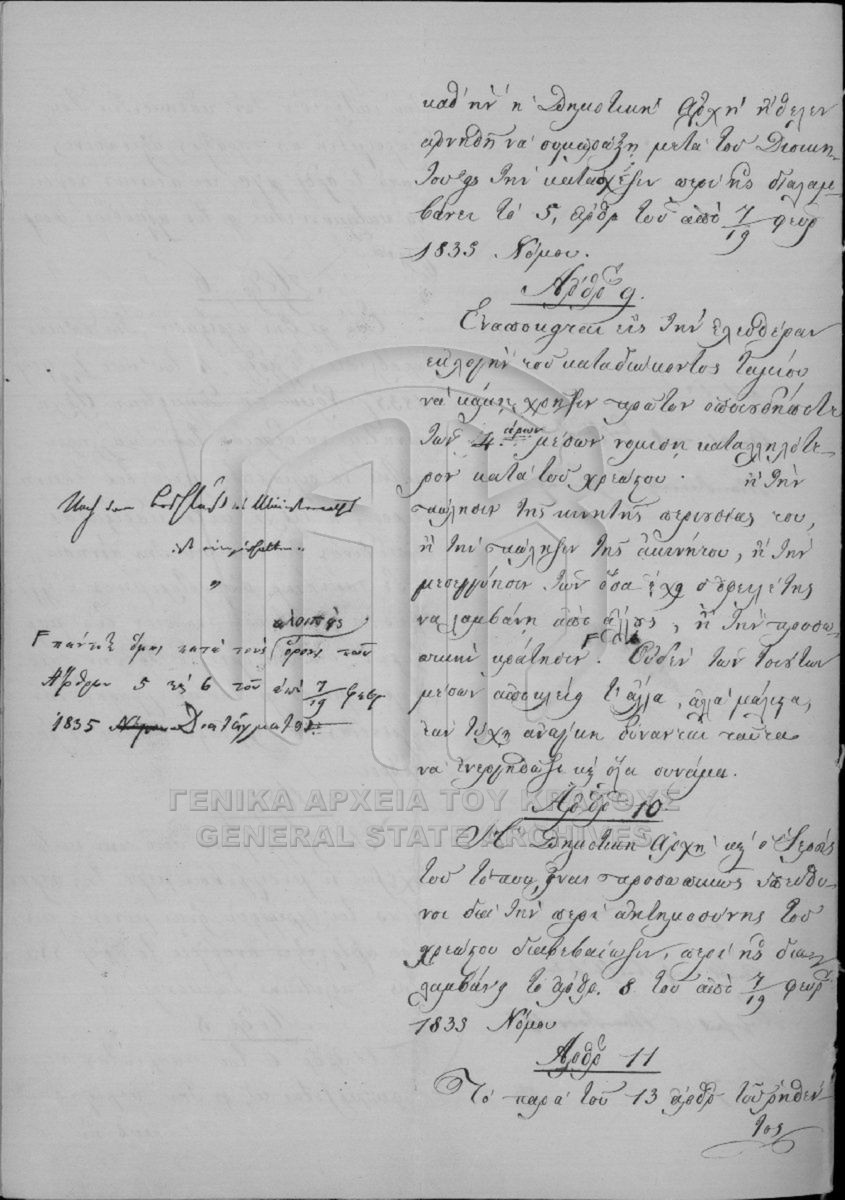 καθ' ἣν ἡ Δημοτικὴ Ἀρχὴ ἤθελεν
ἀρνηθῆ νὰ συμπράξῃ μετὰ τοῦ Διοικη-
τοῦ εἰς τὴν κατάσχεσιν περὶ ἧς διαλαμ-
βάνει τὸ 5, ἄρθρ τοῦ ἀπὸ 7/19 Φεβρ
1835 Νόμου.
Ἄρθρ 9.
Ἐναπόκειται εἰς τὴν ἐλευθέραν
ἐκλογὴν τοῦ καταδιώκοντος Ταμείου
νὰ κάμῃ χρῆσιν πρῶτον ὁποιουδήποτε
τῶν 4.άρων μέσων νομίσῃ καταλληλότε-
ρον κατὰ τοῦ χρεώστου. ἢ τὴν
πώλησιν τῆς κινητῆς περιουσίας του,
ἢ τὴν πώλησιν τῆς ἀκινήτου, ἢ τὴν
μεσεγγύησιν τῶν ὅσα ἔχει ὁ ὀφειλέτης
νὰ λαμβάνῃ ἀπὸ ἄλλους, ἢ τὴν προσω-
πικὴν κράτησιν. Οὐδὲν τῶν τοιούτων
μέσων ἀποκλείει τ' ἄλλα, ἀλλὰ μάλιστα,
ἂν τύχῃ ἀνάγκη δύνανται ταῦτα
νὰ ἐνεργηθῶσι κ' ὅλα συνάμα.
Ἄρθρ 10
Ἡ Δημοτικὴ Ἀρχὴ καὶ ὁ Ἱερεὺς
τοῦ τόπου, εἶναι προσωπικῶς ὑπεύθυ-
νοι διὰ τὴν περὶ ἀπημοσύνης τοῦ
χρεώστου διαβεβαίωσιν, περὶ ἧς δια-
λαμβάνει τὸ ἄρθρ. 8 τοῦ ἀπὸ 7/19 Φεβρ
1835 Νόμου
Ἄρθρ 11
Τὸ παρὰ τοῦ 13 ἄρθρ τοῦ ῥηθέν-
τος
Nach dem
ist
"
πάντοτε ὅμως κατὰ τοὺς ὅρους τῶν
Ἄρθρων 5 καὶ 6 τοῦ ἀπὸ 7/19 Φεβρ
1835 Νόμου Διατάγματος.
ΓΕΝΙΚΑ ΑΡΧΕΙΑ ΤΟΥ ΚΡΑΤΟΥΣ
GENERAL STATE ARCHIVES